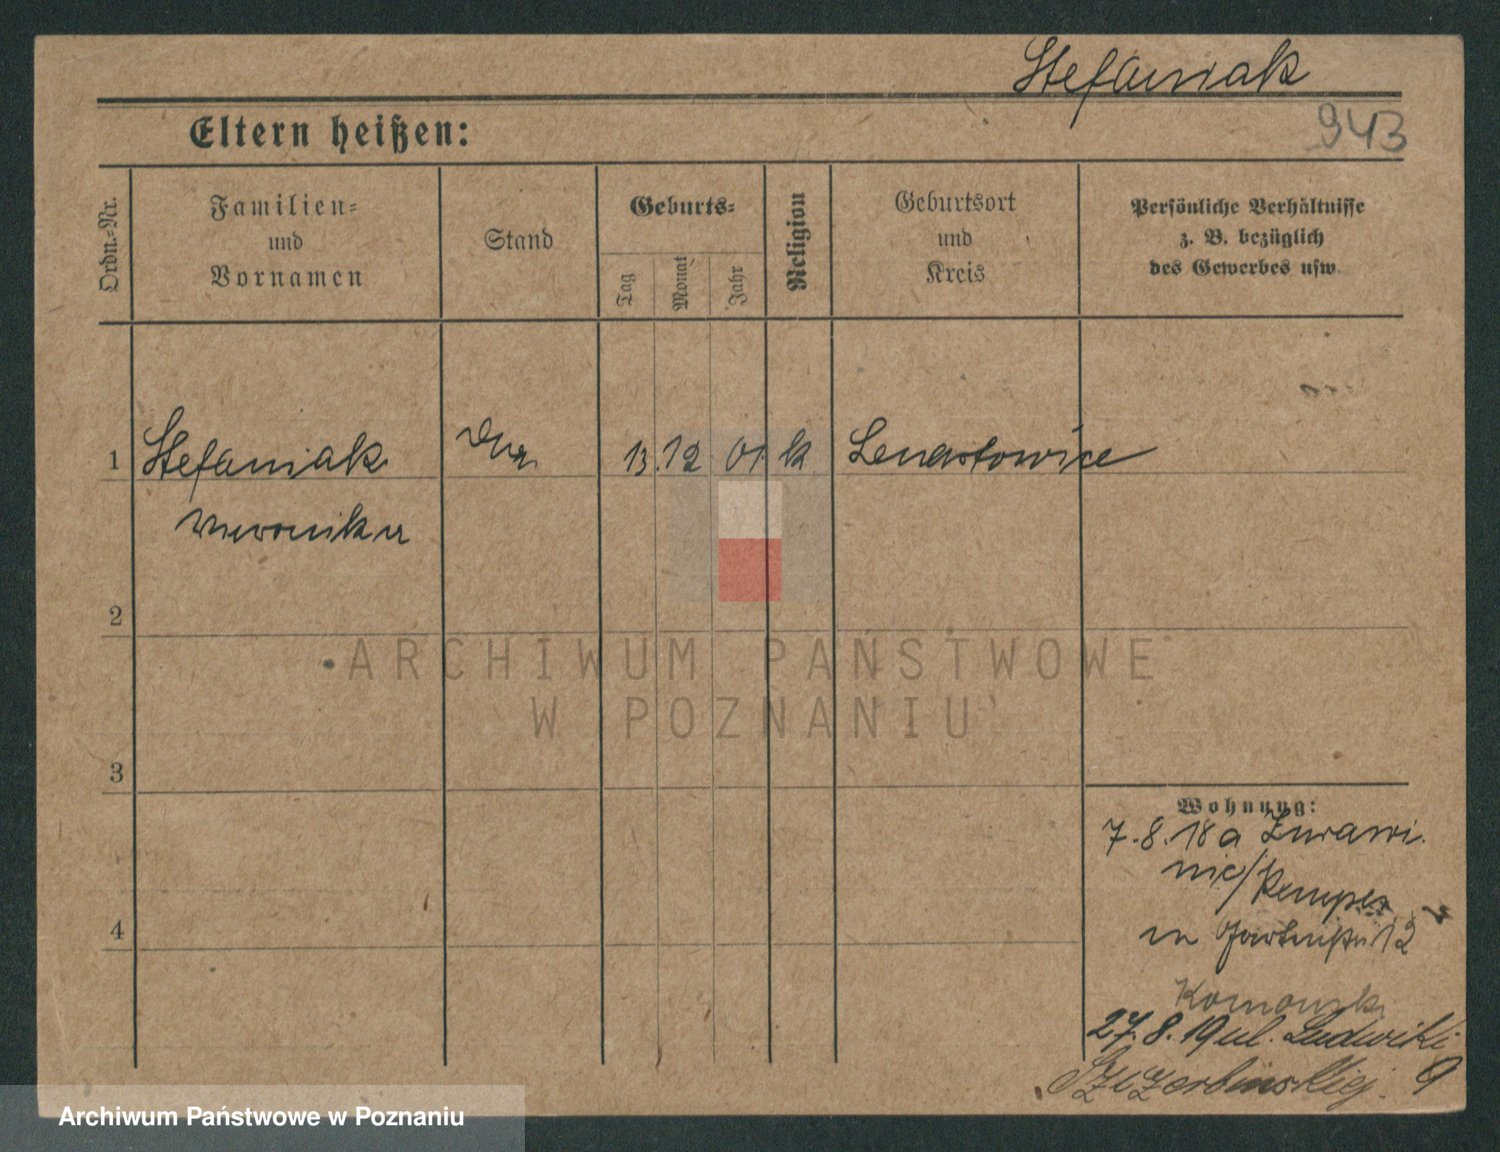 Stefaniak
943
Eltern heißen:
Ordn.-Nr.
Familien-
und
Vornamen
Stand
Geburts-
Tag
Monat
Jahr
Religion
Geburtsort
und
Kreis
Persönliche Verhältnisse
z. B. bezüglich
des Gewerbes usw.
1 Stefaniak 13. 12 01 k
Weronika
2
ARCHIWUM PAŃSTWOWE
W POZNANIU
3
Wohnung:
7.8.18 a Zurawi
nic/Kempen
in 12
4
27.8.19 ul. Ludwiki
Szczerbinskiej. 9
Archiwum Państwowe w Poznaniu